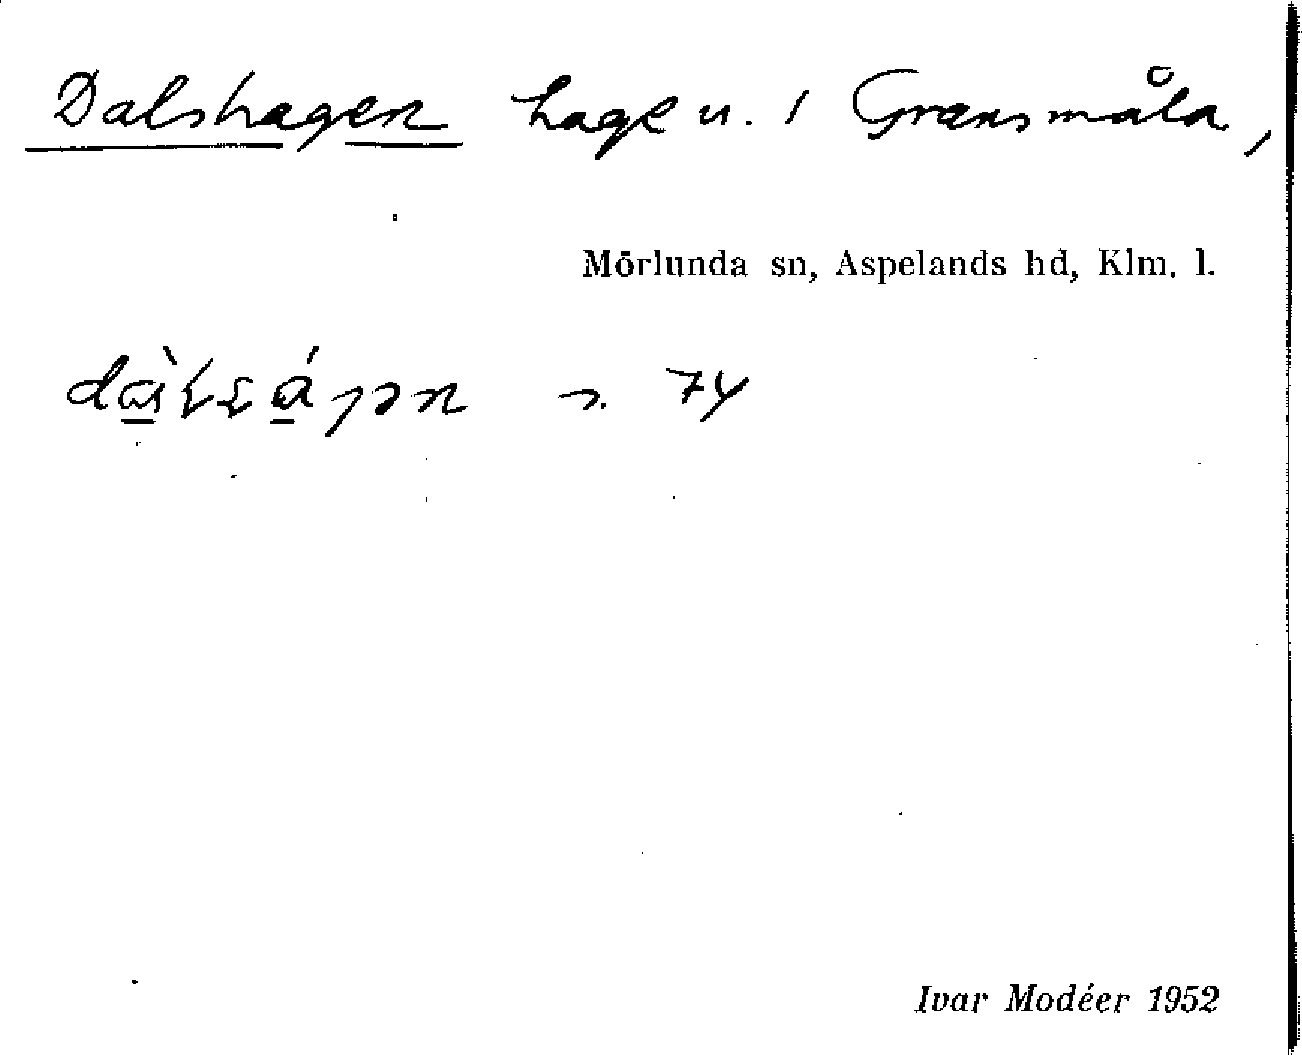 Dalshagen hage u. / Gransmåla,
Mörlunda sn, Aspelands hd, Klm. l.
s. 74
Ivar Modéer 1952